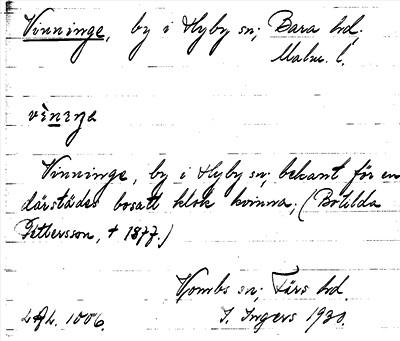 Vinninge, by i Hyby sn; Bara hd;
Malm. l.
Vinninge, by i Hyby sn; bekant för en
därstädes bosatt klok kvinna; (Botilda
Pettersson, † 1877.)
Vombs sn; Färs hd.
L.A.L. 1006. I. Ingers 1930.